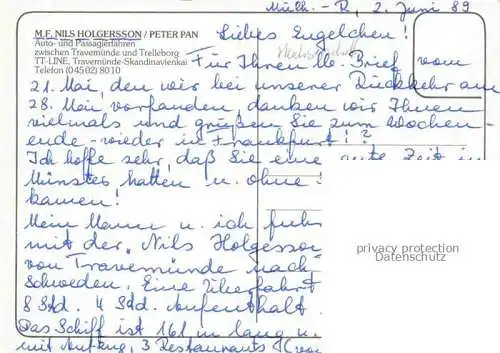 Mülh.-R, 2. Juni 89
M.F. NILS HOLGERSSON / PETER PAN
Auto- und Passagierfähren
zwischen Travemünde und Trelleborg
TT-LINE, Travemünde-Skandinavienkai
Telefon (04502) 8010
Liebes Engelchen!
Für Ihren lb. Brief vom
21. Mai, den wir bei unserer Rückkehr am
28. Mai vorfanden, danken wir Ihnen
vielmals und grüßen Sie zum Wochen-
ende - wieder in Frankfurt!?
Ich hoffe sehr, daß Sie eine gute Zeit in
Münster hatten u. ohne
kamen!
Mein Mann u. ich fuhr
mit der "Nils Holgersson
von Travemünde nach
Schweden. Eine Überfahrt
8 Std. 4 Std. Aufenthalt.
Das Schiff ist 161 m lang u.
mit Aufzug, 3 Restaurants (vor
privacy protection
Datenschutz